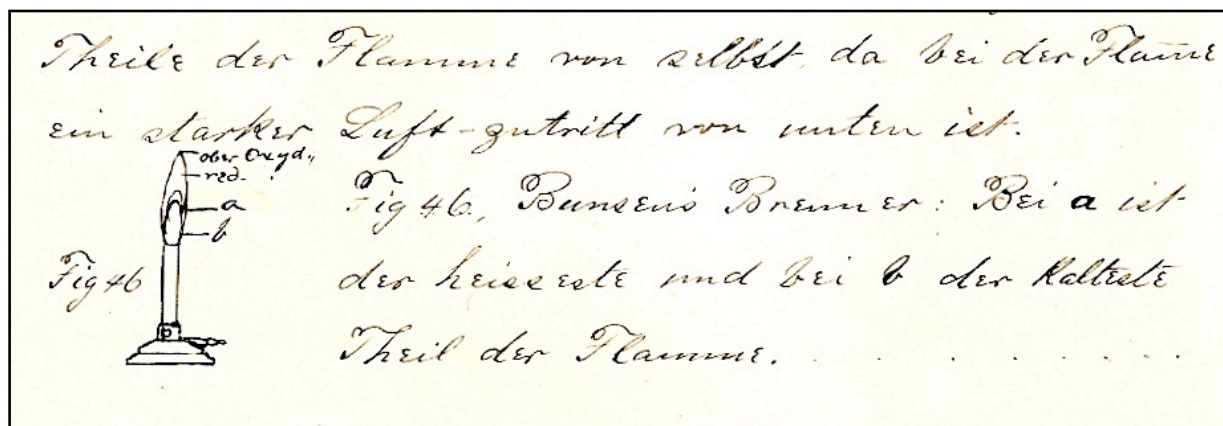 Theile der Flamme von selbst, da bei der Flam̅e
ein starker Luft-zutritt von unten ist.
ober Oxyd.,
red.
a
b
Fig 46
Fig 46, Bunsens Brenner: Bei a ist
der heisseste und bei b der Kalteste
Theil der Flamme. . . . . . . . .